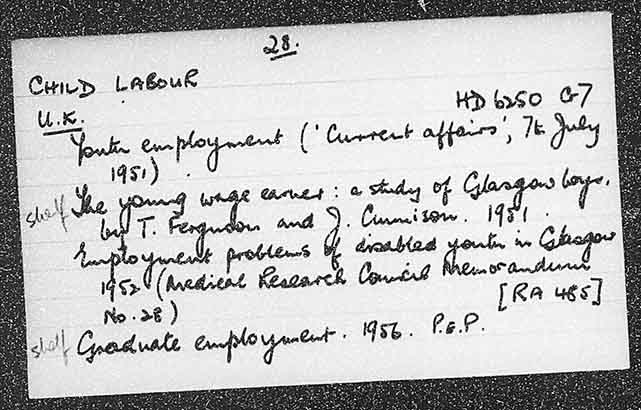 28.
CHILD LABOUR
U.K.
HD 6250 G7
Youth employment ('Current affairs', 7th July
1951).
shelf The young wage earner: a study of Glasgow boys,
by T. Ferguson and J. Cunnison. 1951.
Employment problems of disabled youth in Glasgow
1952 (Medical Research Council Memorandum
No. 28)
[RA 485]
shelf Graduate employment. 1956. P.E.P.